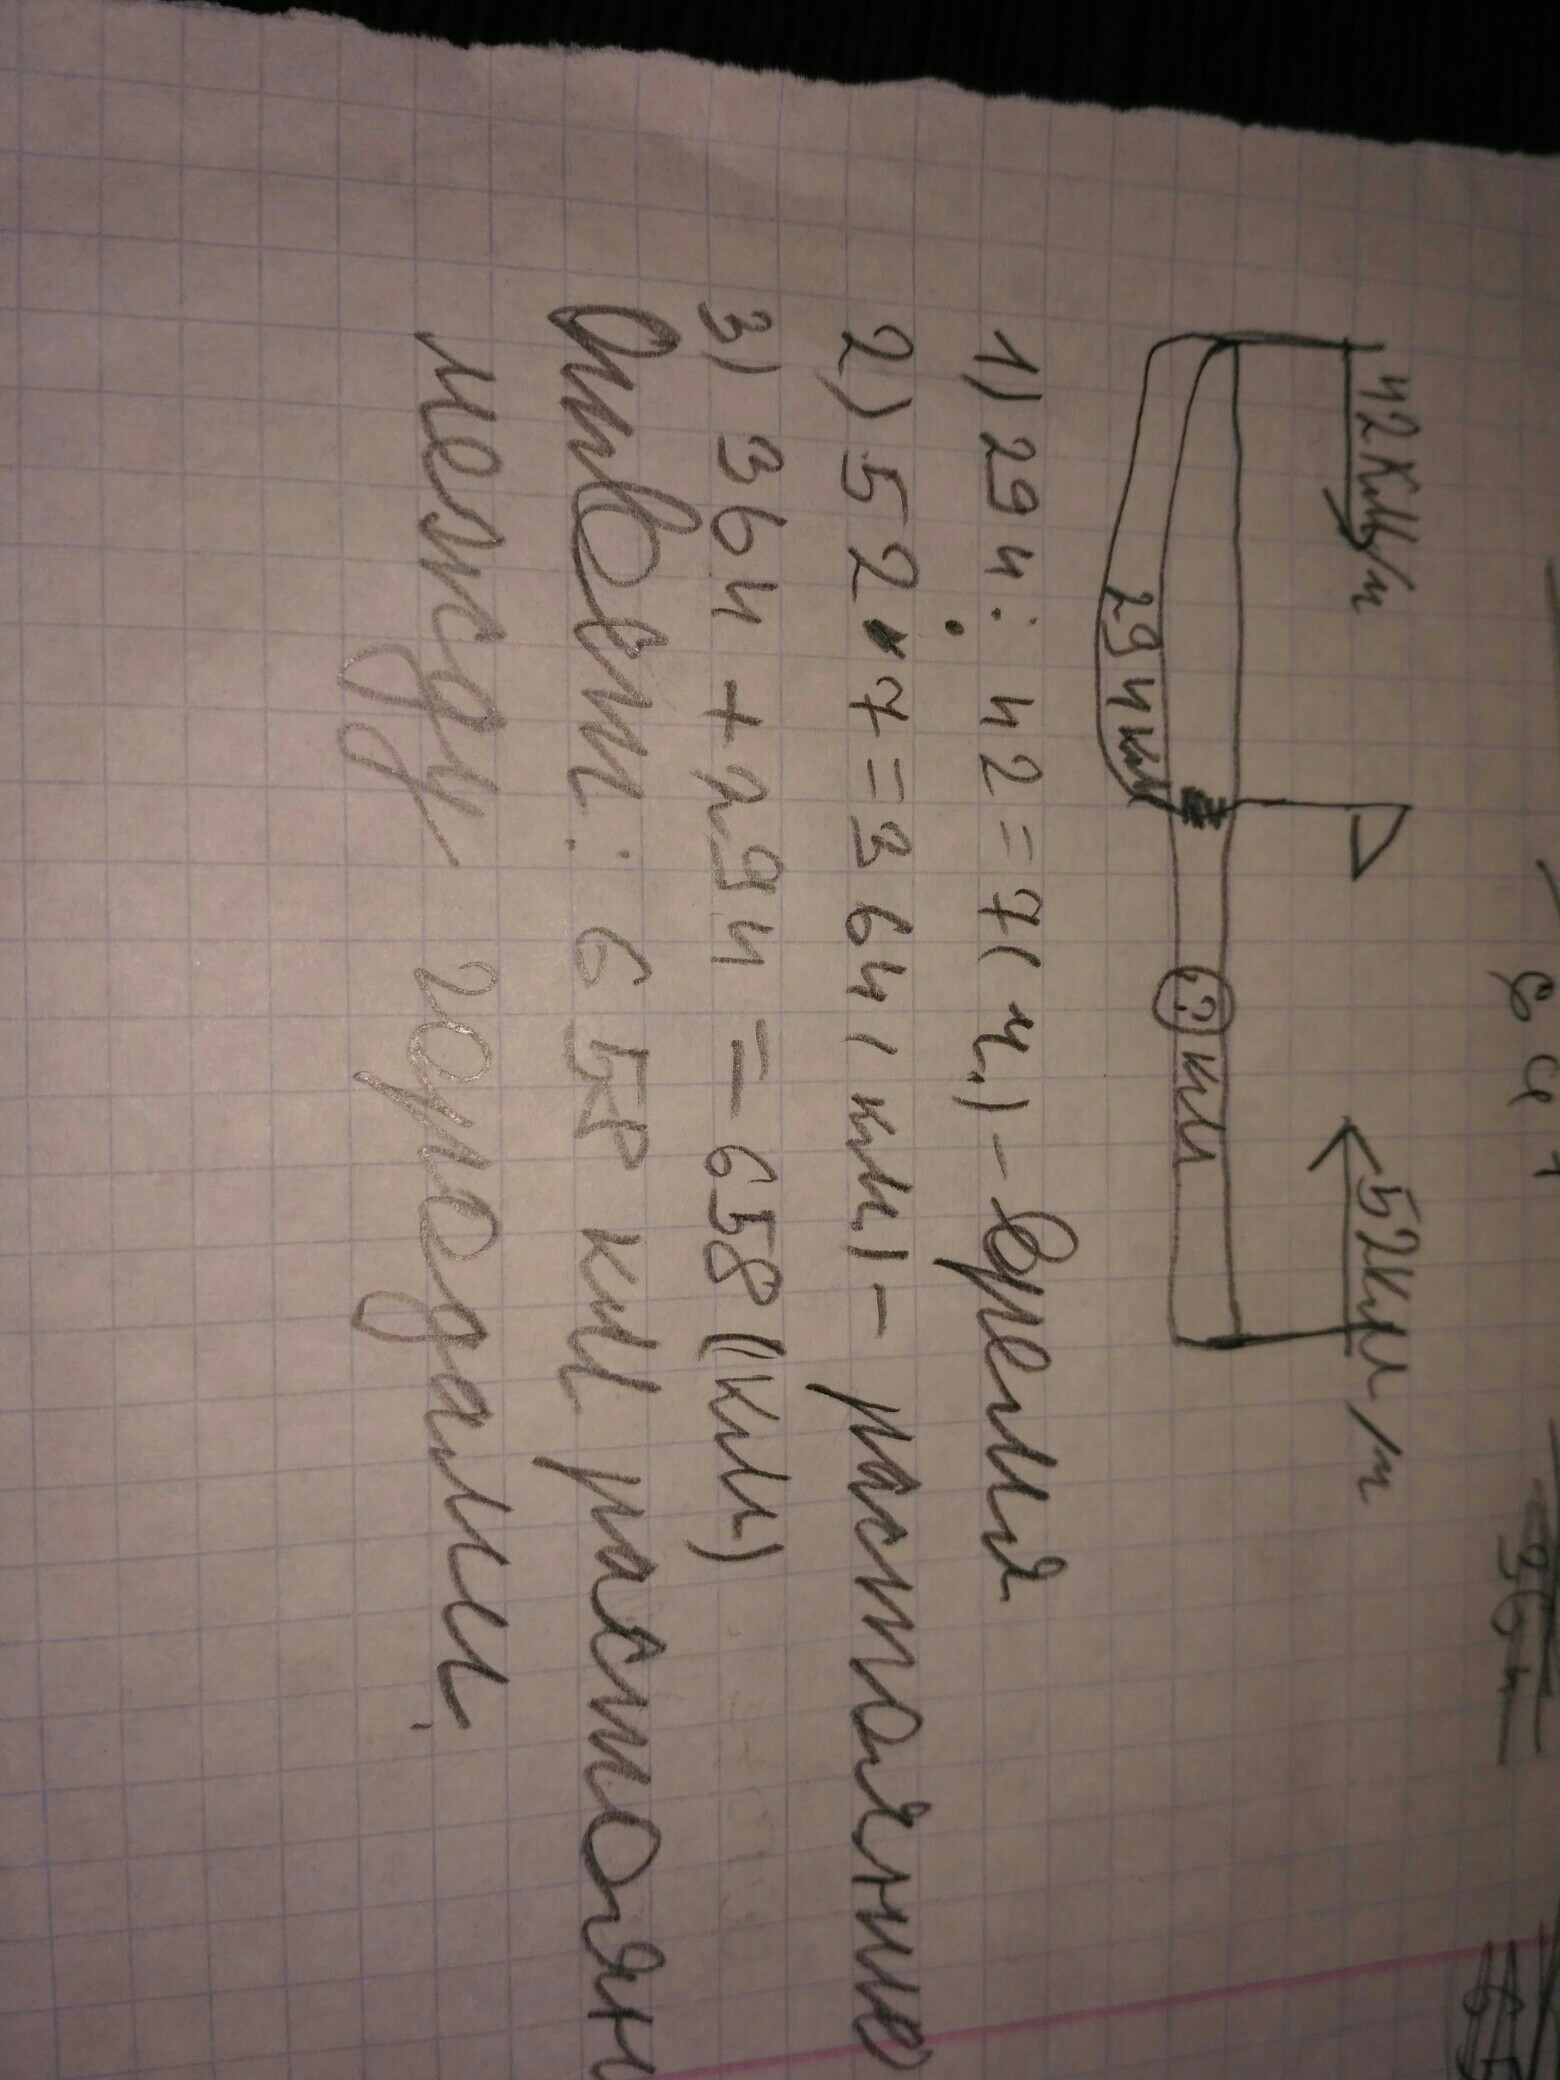 42 км/ч 52 км/ч
294 км ? км
1) 294 : 42 = 7 (ч.) - время
2) 52 · 7 = 364 (км.) - растояние
3) 364 + 294 = 658 (км.)
Ответ: 658 км растоян
между городами.